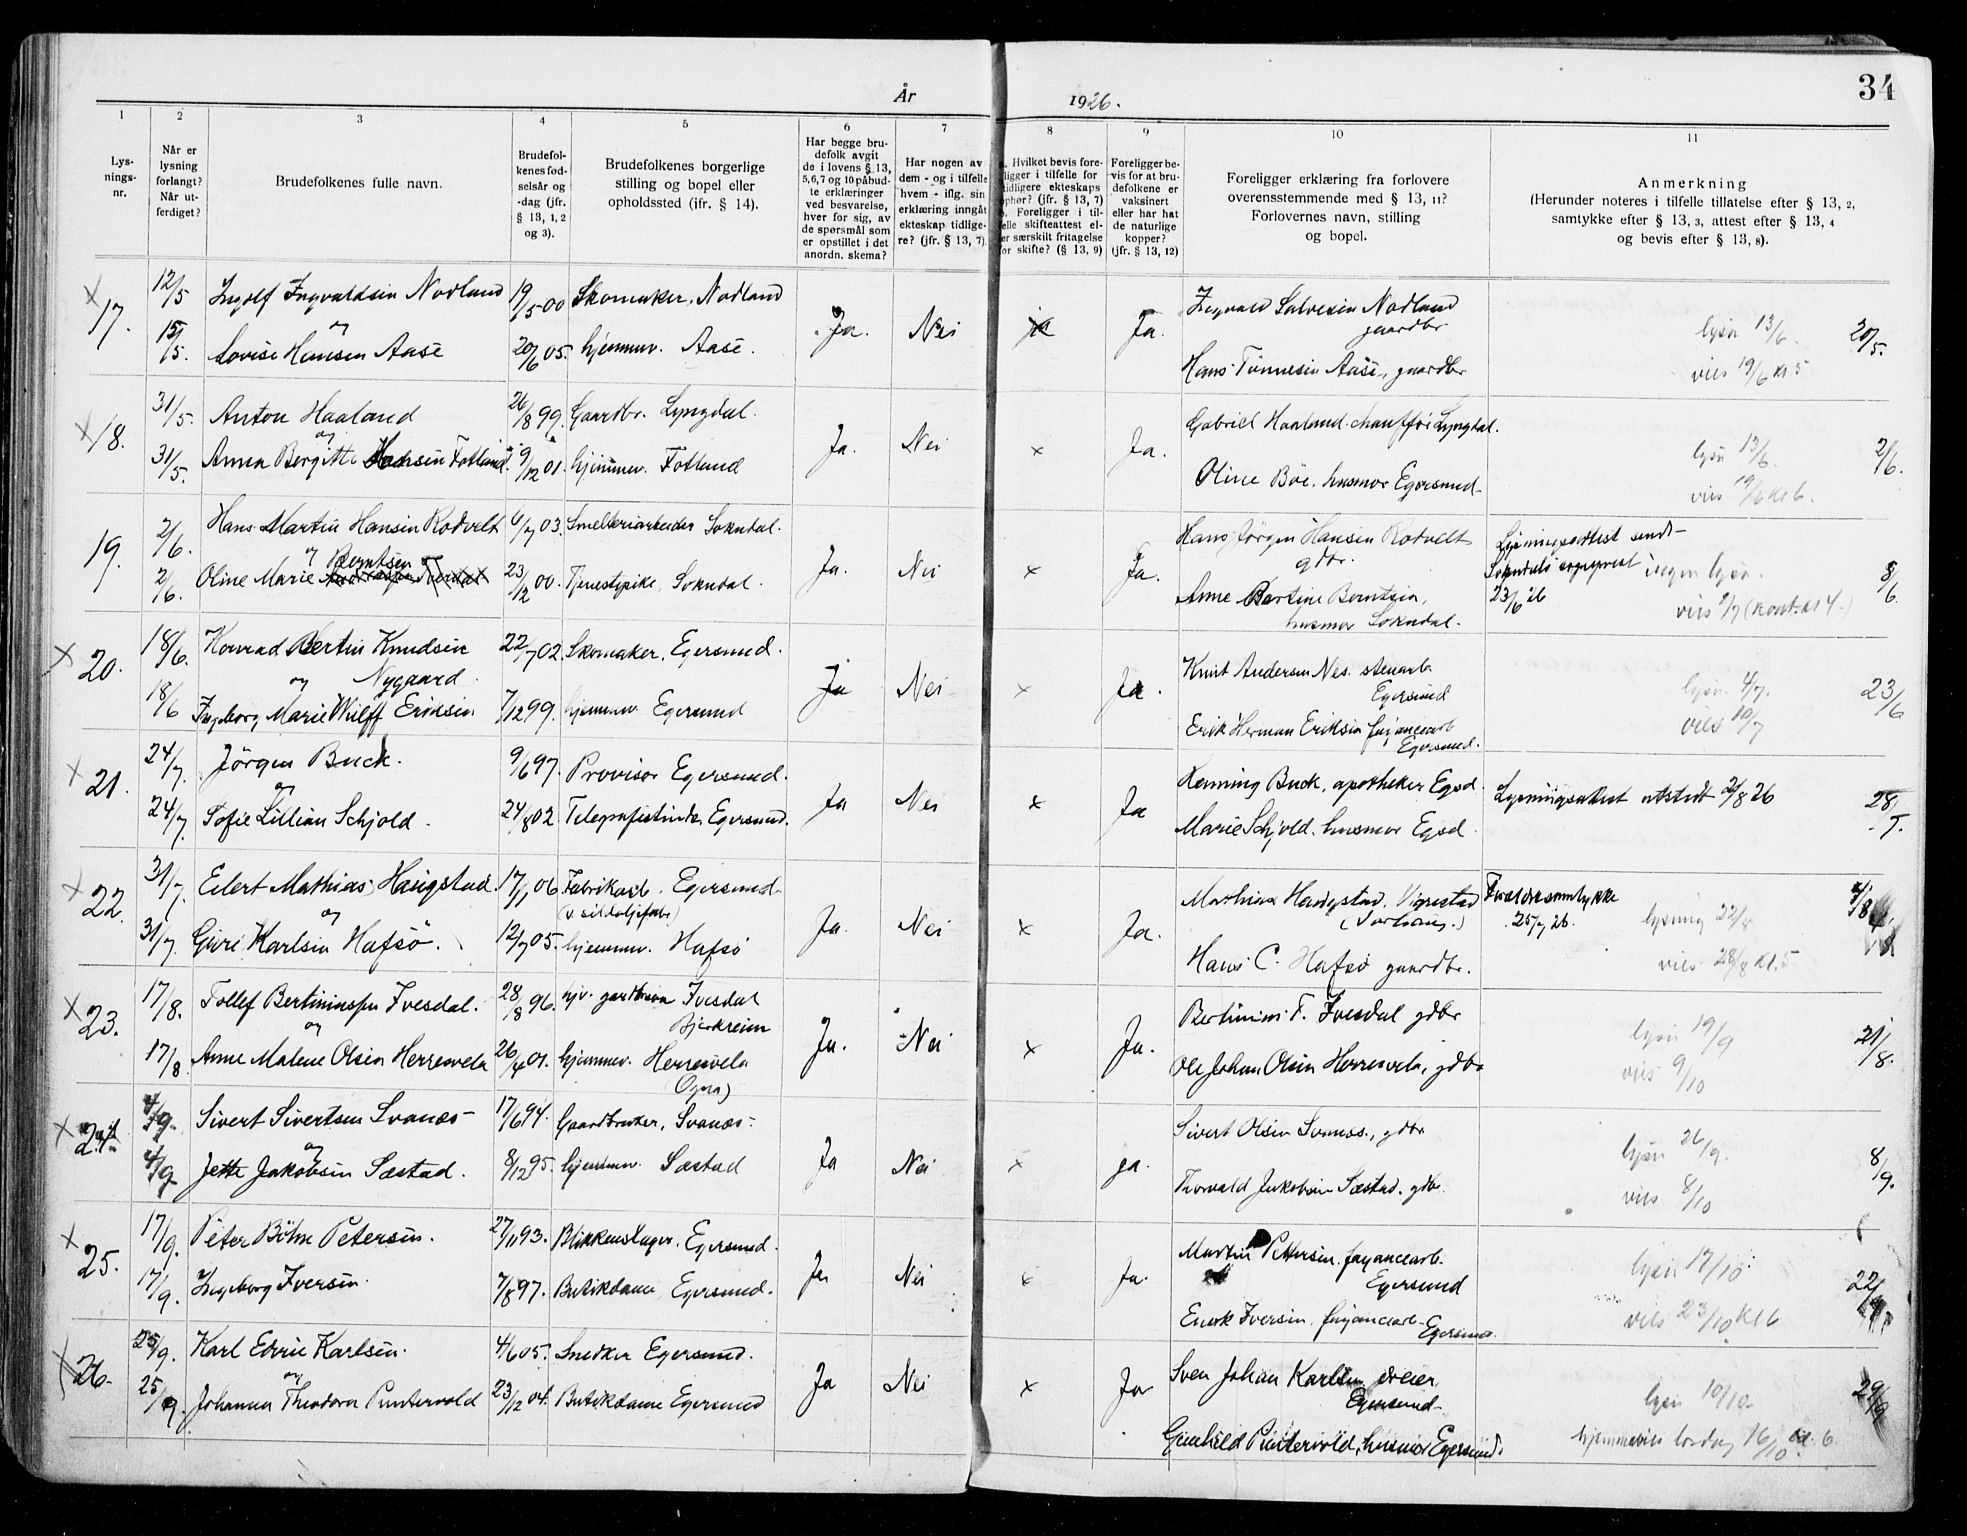 34
År 1926.
1 2 3 4 5 6 7 8 9 10 11
Lys-
nings-
nr.
Når er
lysning
forlangt?
Når ut-
ferdiget?
Brudefolkenes fulle navn.
Brudefol-
kenes fød-
selsår og
-dag (jfr.
§ 13, 1, 2
og 3).
Brudefolkenes borgerlige
stilling og bopel eller
opholdssted (ifr. § 14).
Har begge bru-
defolk avgit
de i lovens § 13,
5,6,7 og 10 påbud-
te erklæringer
ved besvarelse,
hver for sig, av
de spørsmål som
er opstillet i det
anordn. skema?
Har nogen av
dem - og i tilfelle
hvem - iflg. sin
erklæring inngåt
ekteskap tidlige-
re? (jfr. § 13, 7).
Hvilket bevis fore-
ligger i tilfelle for
tidligere ekteskaps
ophør? (jfr. § 13, 7)
Foreligger i til-
felle skifteattest el-
ler særskilt fritagelse
for skifte? (§ 13, 9)
Foreligger be-
vis for at bru-
defolkene er
vaksinert
eller har hat
de naturlige
kopper?
(jfr. § 13, 12)
Foreligger erklæring fra forlovere
overensstemmende med § 13, 11?
Forlovernes navn, stilling
og bopel.
Anmerkning
(Herunder noteres i tilfelle tillatelse efter § 13, 2,
samtykke efter § 13, 3, attest efter § 13, 4
og bevis efter § 13, 8).
17. 12/5 Ingolf Ingvaldsen Nodland 19/5 00 Skomaker, Nodland Ja. Nei Ja. Ingvald Salvesen Nodland
og gaardbr lysn 13/6 20/5.
15/5. Lovise Hansen Aase 20/6 05. hjemmev. Aase. Hans Tønnesen Aase, gaardbr vies 19/6 kl 5
18. 31/5. Anton Haaland 26/8 99. Gaardbr. Lyngdal. Ja. Nei x Ja. Gabriel Haaland chauffør Lyngdal.
og lysn 13/6. 2/6.
31/5. Anna Bergitte Hansen Fotland. 9/12 01. hjemmev. Fotland Oline Böe. husmor Egersund vies 19/6 kl 6.
19. 2/6. Hans Martin Hansen Rodvelt 6/7 03. Smelteriarbeider Sokndal. Ja. Nei x Ja. Hans Jørgen Hansen Rodvelt gdbr. Lysningsattest sendt
og Berntsen Sokndals sogneprest ingen lysn. 8/6.
2/6. Oline Marie 23/12 00. Tjenestepike, Sokndal. Anne Bertine Berntsen, 23/6 26 vies 2/7 (kont. kl 4)
husmor Sokndal.
20. 18/6. Konrad Bertin Knudsen 22/7 02. Skomaker, Egersund. Ja Nei x Ja. Knut Andersen Nes. stenarb.
og Nygaard. Egersund lysn. 4/7. 23/6
18/6 Ingeborg Marie Wulff Eriksen 7/12 99. hjemmev. Egersund Erik Herman Eriksen fajancearb vies 10/7
Egersund.
21. 24/7. Jörgen Buck. 9/6 97. Provisor Egersund. Ja Nei x Ja Henning Buck, apotheker Egsd. Lysningsattest utstedt 2/8 26 28/7.
og
24/7. Sofie Lillian Schjold. 24/8 02. Telegrafistinde, Egersund. Marie Schjold. husmor Egsd.
22. 31/7. Eilert Mathias Haugstad. 17/1 06 Fabrikarb. Egersund. Ja. Nei x Ja. Mathias Haugstad. Vigrestad Forældresamtykke
og (v sildoljefabr) (Varhaug.) 25/7 26. lysning 22/8 4/8
31/7. Guri Karlsen Hafsö. 12/7 05. hjemmev. Hafsö Hans C. Hafsö gaardbr. vies 28/8 kl. 5
23. 17/8. Tollef Bertiniussen Ivesdal. 28/8 96. hjv. gardbrson Ivesdal Ja. Nei x Ja. Bertinius T. Ivesdal gdbr
og Bjerkreim lysn 19/9 21/8.
17/8 Anne Malene Olsen Herresvela 26/4 01. hjemmev. Herresvela Ole Johan Olsen Herresvela, gdbr vies 9/10
(Ogna)
24. 4/9. Sivert Sivertsen Svanes 17/6 94. Gaardbruker, Svanes. Ja Nei x ja. Sivert Olsen Svanes, gdbr
og lysn 26/9. 8/9.
4/9. Jette Jakobsen Sæstad. 8/12 95. hjemmev. Sæstad Thorvald Jakobsen Sæstad. gdb. vies 8/10
25. 17/9. Peter Böhn Petersen. 27/11 93. Blikkenslager. Egersund. Ja Nei x Ja. Martin Pettersen. fayancearb.
Egersund lysn 17/10. 22/9
17/9. Ingeborg Iversen. 7/8 97. Butikdame Egersund. Enok Iversen, fayancearb Egersund. vies 23/10 kl 6
26. 25/9. Karl Edvin Karlsen. 4/6 05. Snedker Egersund. Ja Nei x Ja Sven Johan Karlsen dreier.
og Egersund lysn 10/10 29/9
25/9. Johanna Theodora Puntervold 23/12 04. Butikdame Egersund Gunhild Puntervold, husmor Egersund. hjemmevies lørdag 16/10 kl. 6.